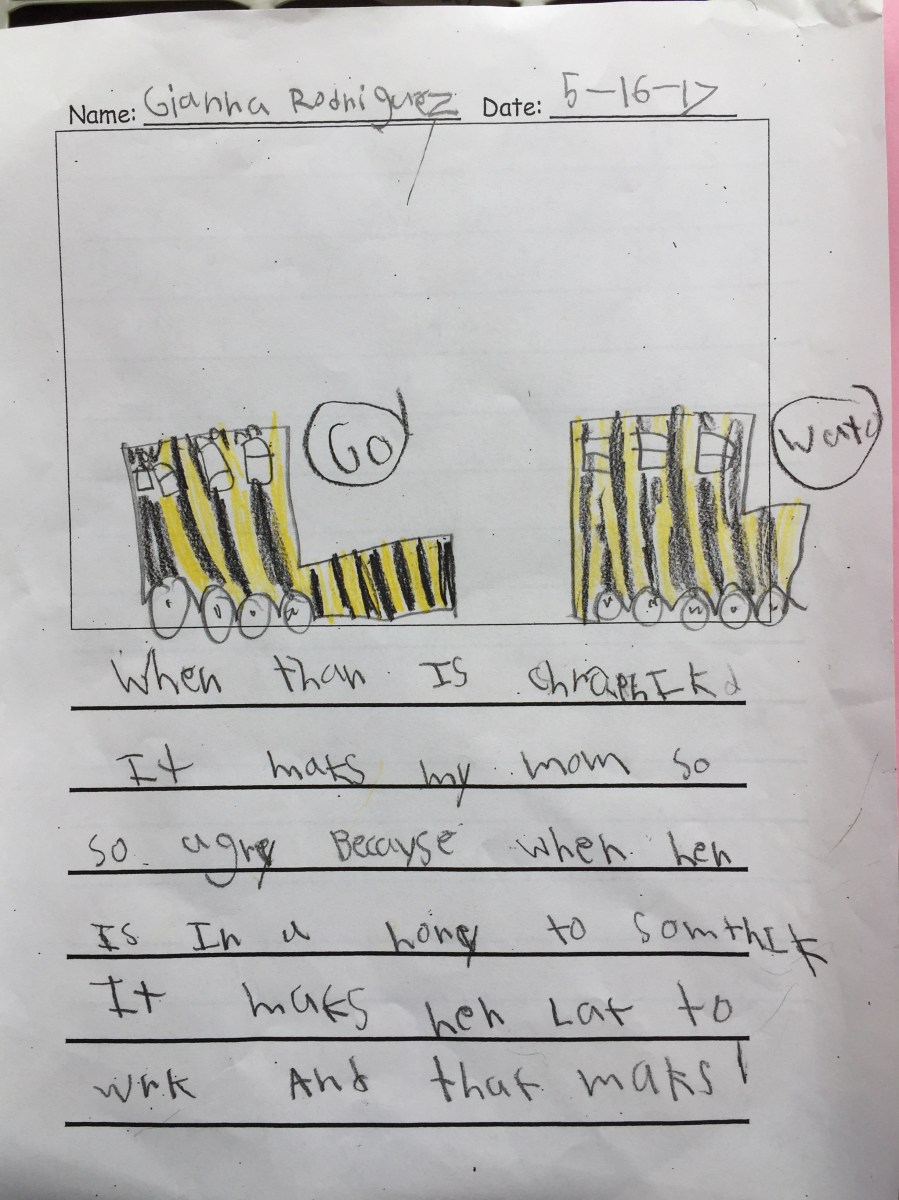 Name: Gianna Rodriguez Date: 5-16-17
Go
When than Is chraphIk d
It maks my mom so
so agry Because when her
Is In a hory to somthIk
It maks her Lat to
wrk And that maks